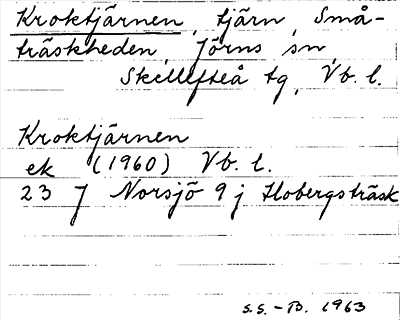 Kroktjärnen, tjärn, Små-
träskheden, Jörns sn,
Skellefteå tg, Vb. l.
Kroktjärnen
ek (1960) Vb. l.
23 J Norsjö 9 j Flobergsträsk
S.S. - B. 1963